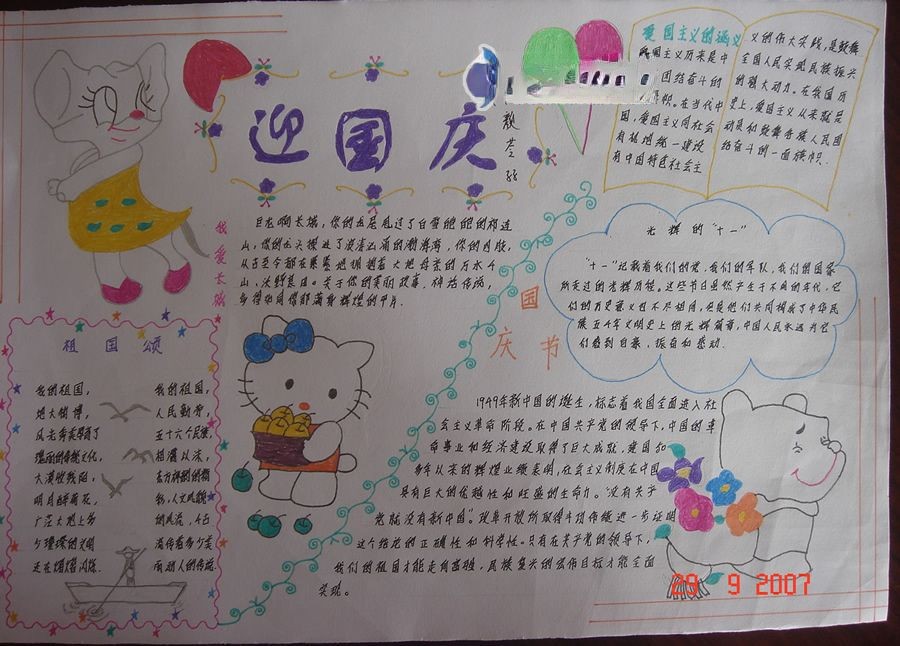 迎国庆
爱国主义的涵义
爱国主义历来是中
团结奋斗的
旗帜。在当代中
国，爱国主义同社会
有机地统一建设
有中国特色社会主
义的伟大实践，是鼓舞
全国人民实现民族振兴
的强大动力。在我国历
史上，爱国主义从来就是
动员和鼓舞各族人民团
结奋斗的一面旗帜。
我爱长城
巨龙啊长城，你的龙尾甩过了白雪皑皑的祁连
山，你的龙头探进了波涛汹涌的渤海湾，你的
从古至今都在
山，沃野良田。关于你的美丽故事，
国庆节
光辉的“十一”
“十一”记载着我们的党，我们的军队，我们的国家
所走过的光辉历程。这些节日虽然产生于不同的年代，它
们的历史意义也不尽相同，但是他们共同构成了中华民
族五千年文明史上的光辉篇章，中国人民永远为它
们感到自豪，振奋和感动。
祖国颂
我的祖国，
地大物博，
风光秀美孕育了
瑰丽的传统文化，
大漠收残阳，
明月醉荷花，
广茫大地上多
少璀璨的文明
还在熠熠闪烁。
我的祖国，
人民勤劳，
五十六个民族，
相濡以沫，
的风流，
还传着多少美
丽动人的传说。
1949年新中国的诞生，标志着我国全面进入社
会主义革命阶段。在中国共产党的领导下，中国的革
命事业和经济建设取得了巨大成就，建国50
多年从来的辉煌业绩表明，社会主义制度在中国
具有巨大的优越性和旺盛的生命力。“没有共产
党就没有新中国”。改革开放所取得的伟大成就进一步证明
这个结论的正确性和科学性。只有在共产党的领导下，
我们的祖国才能走向富强，民族复兴的宏伟目标才能全面
实现。
29 9 2007